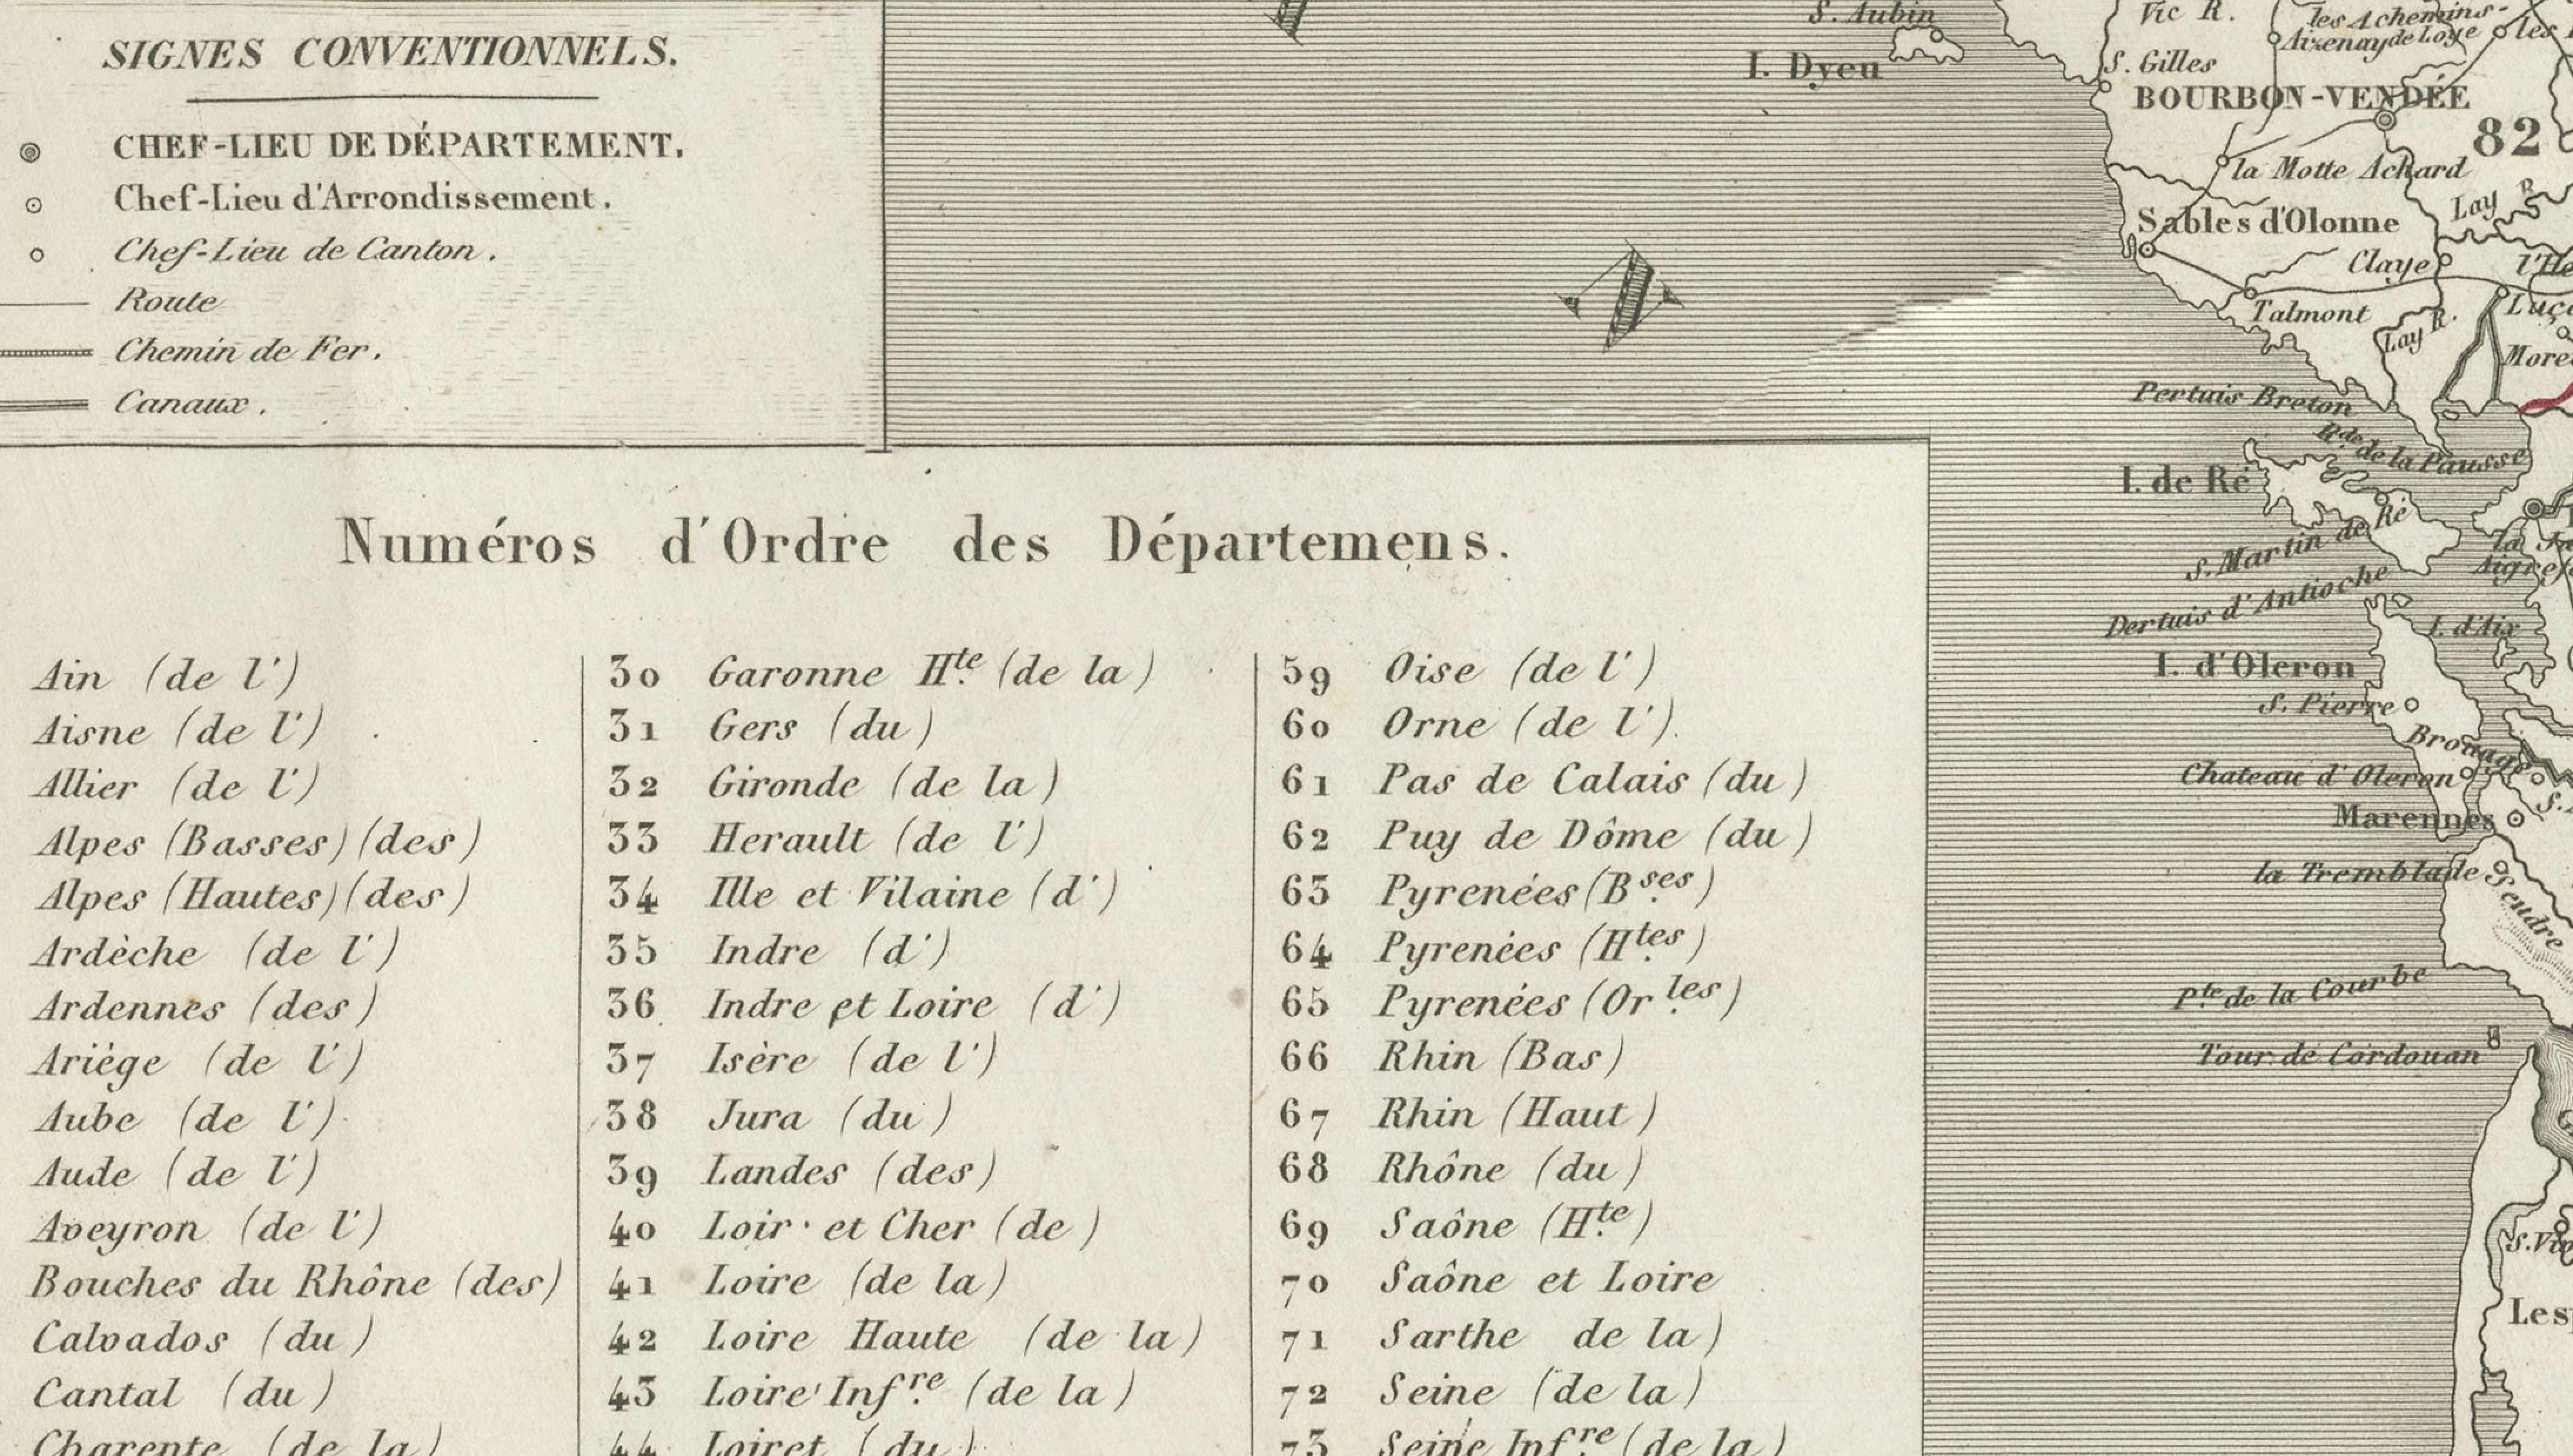 SIGNES CONVENTIONNELS.
CHEF-LIEU DE DÉPARTEMENT.
Chef-Lieu d'Arrondissement.
Chef-Lieu de Canton.
Route
Chemin de Fer.
Canaux.
Numéros d'Ordre des Départemens.
Ain (de l')
Aisne (de l')
Allier (de l')
Alpes (Basses) (des)
Alpes (Hautes) (des)
Ardèche (de l')
Ardennes (des)
Ariège (de l')
Aube (de l')
Aude (de l')
Aveyron (de l')
Bouches du Rhône (des)
Calvados (du)
Cantal (du)
Charente (de la)
30 Garonne Hte. (de la)
31 Gers (du)
32 Gironde (de la)
33 Herault (de l')
34 Ille et Vilaine (d')
35 Indre (d')
36 Indre et Loire (d')
37 Isère (de l')
38 Jura (du)
39 Landes (des)
40 Loir et Cher (de)
41 Loire (de la)
42 Loire Haute (de la)
43 Loire Infre. (de la)
44 Loiret (du)
59 Oise (de l')
60 Orne (de l').
61 Pas de Calais (du)
62 Puy de Dôme (du)
63 Pyrenées (Bses.)
64 Pyrenées (Htes.)
65 Pyrenées (Orles.)
66 Rhin (Bas)
67 Rhin (Haut)
68 Rhône (du)
69 Saône (Hte.)
70 Saône et Loire
71 Sarthe de la)
72 Seine (de la)
73 Seine Infre. (de la)
S. Aubin
I. Dyeu
Vic R.
les 4 chemins
Aizenay de Loye
les
S. Gilles
BOURBON-VENDÉE
82
la Motte Achard
Lay R.
Sables d'Olonne
Claye
l'He
Talmont
Luç
Lay R.
More
Pertuis Breton
Rde. de la Pausse
I. de Ré
S. Martin de Ré
la
Aigref
Dertuis d'Antioche
I. d'Aix
I. d'Oleron
S. Pierre
Brouage
Chateau d'Oleron
S.
Marennes
la Tremblade
Seudre
Pte. de la Courbe
Tour de Cordouan
S. Viv
Les